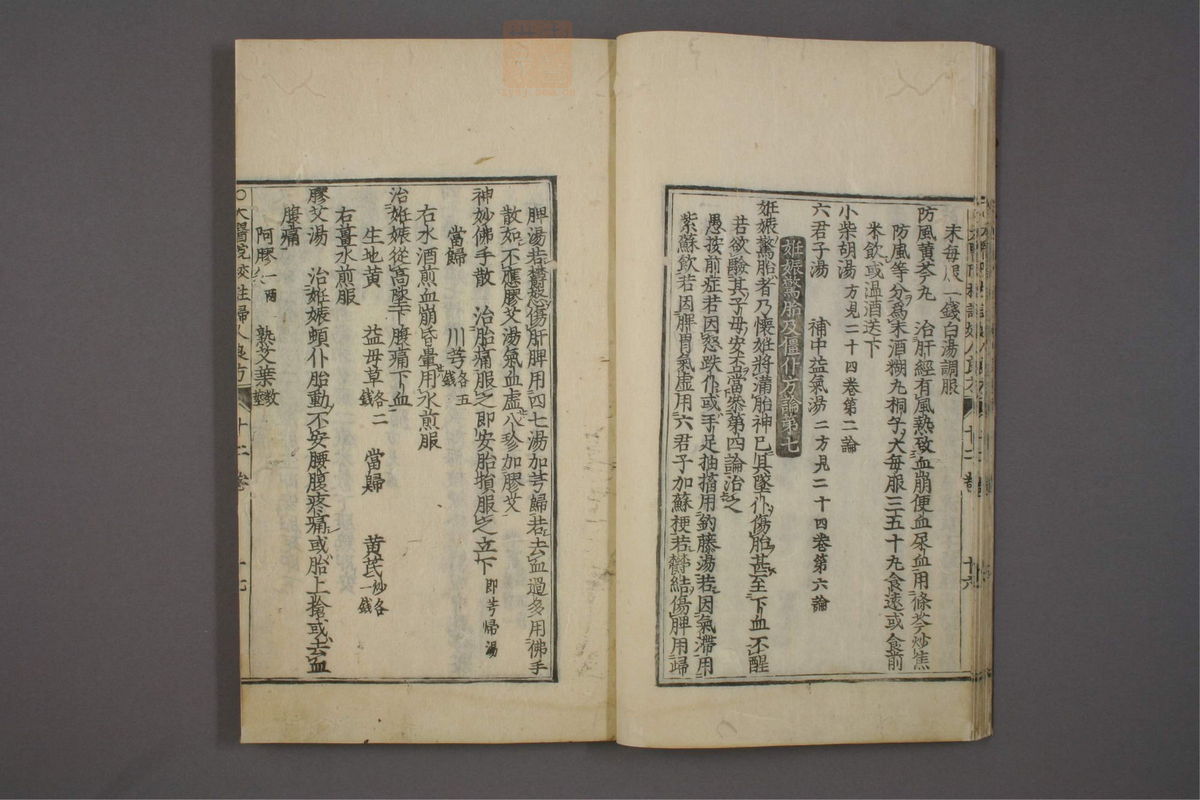 末每服一錢白湯調服
防風黃芩丸　治肝經有風熱致血崩便血尿血用條芩炒焦
防風等分爲末酒糊丸桐子大每服三五十丸食遠或食前
米飲或溫酒送下
小柴胡湯 方見二十四卷第二論
六君子湯　補中益氣湯 二方見二十四卷第六論
妊娠驚胎及僵仆方論第七
妊娠驚胎者乃懷妊將滿胎神已具墜仆傷胎甚至下血不醒
若欲驗其子母安否當叅第四論治之
愚按前症若因怒跌仆或手足抽搐用鈎藤湯若因氣滯用
紫蘇飲若因脾胃氣虛用六君子加蘇梗若鬱結傷脾用歸
十二卷　十六
脾湯若鬱怒傷肝脾用四七湯加芎歸若去血過多用佛手
散如不應膠艾湯氣血虛八珍加膠艾
神妙佛手散　治胎痛服之即安胎損服之立下 即芎歸湯
當歸　川芎 各五錢
右水酒煎血崩昏暈用水煎服
治妊娠從高墜下腹痛下血
生地黃　益母草 各二錢　當歸　黃芪 炒各一錢
右薑水煎服
膠艾湯　治妊娠頓仆胎動不安腰腹疼痛或胎上搶或去血
腹痛
阿膠 一兩　熟艾葉 數莖
○太醫院校註婦人良方　十二卷　十七